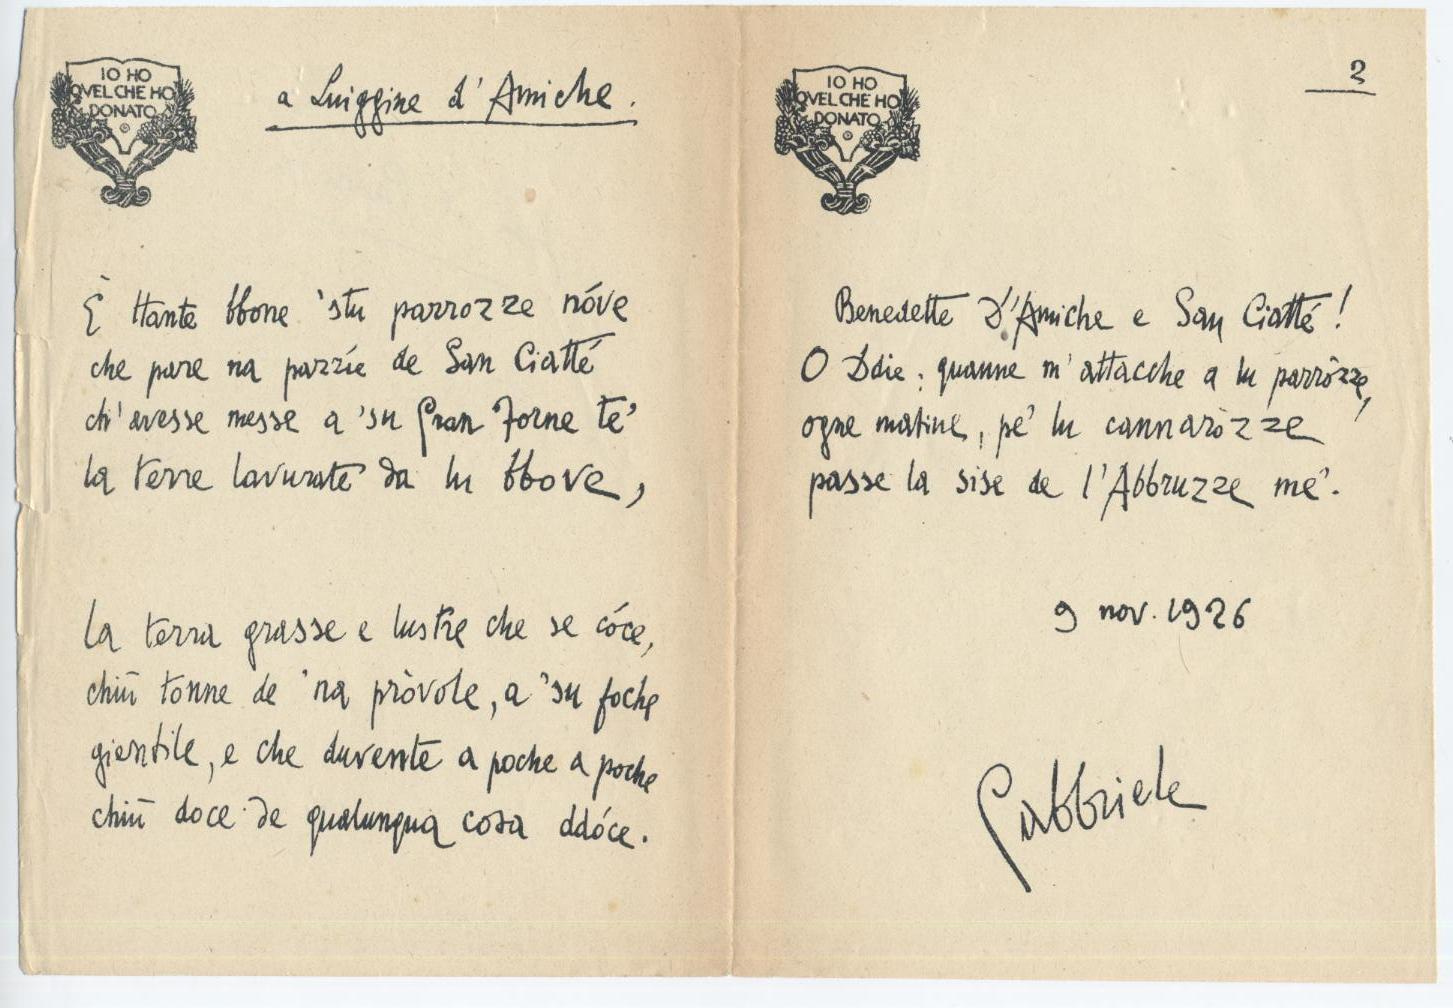 IO HO
QVEL CHE HO
DONATO
a Luiggine d'Amiche.
È ttante bbone 'stu parrozze nóve
che pare na pazzíe de San Ciatté
ch'avesse messe a 'su Gran Forne te'
la terre lavurate da lu bbove,
la terra grasse e lustre che se cóce,
chiù tonne de 'na pròvole, a 'su foche
gientile, e che duvente a poche a poche
chiù doce de qualunqua cosa ddóce.
IO HO
QVEL CHE HO
DONATO
2
Benedette D'Amiche e San Ciatté!
O Ddie, quanne m'attacche a lu parròzze,
ogne matine, pe' lu cannaròzze
passe la sise de l'Abbruzze me'.
9 nov. 1926
Gabbriele